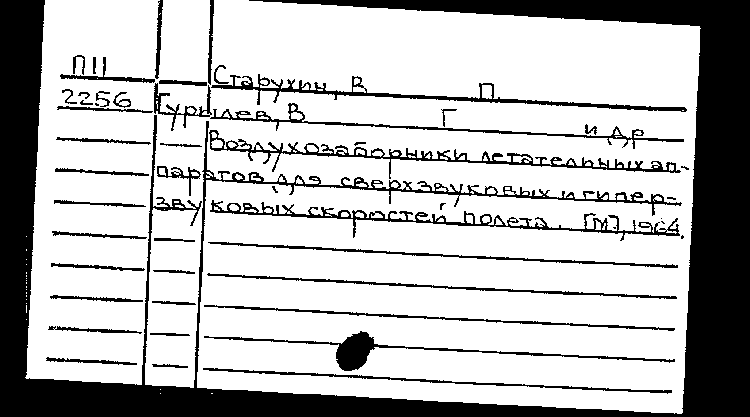 П11
Старухин, В П.
2256 Гурылев, В Г и др
Воздухозаборники летательных ап-
паратов для сверхзвуковых и гипер-
звуковых скоростей полета. [М], 1964.